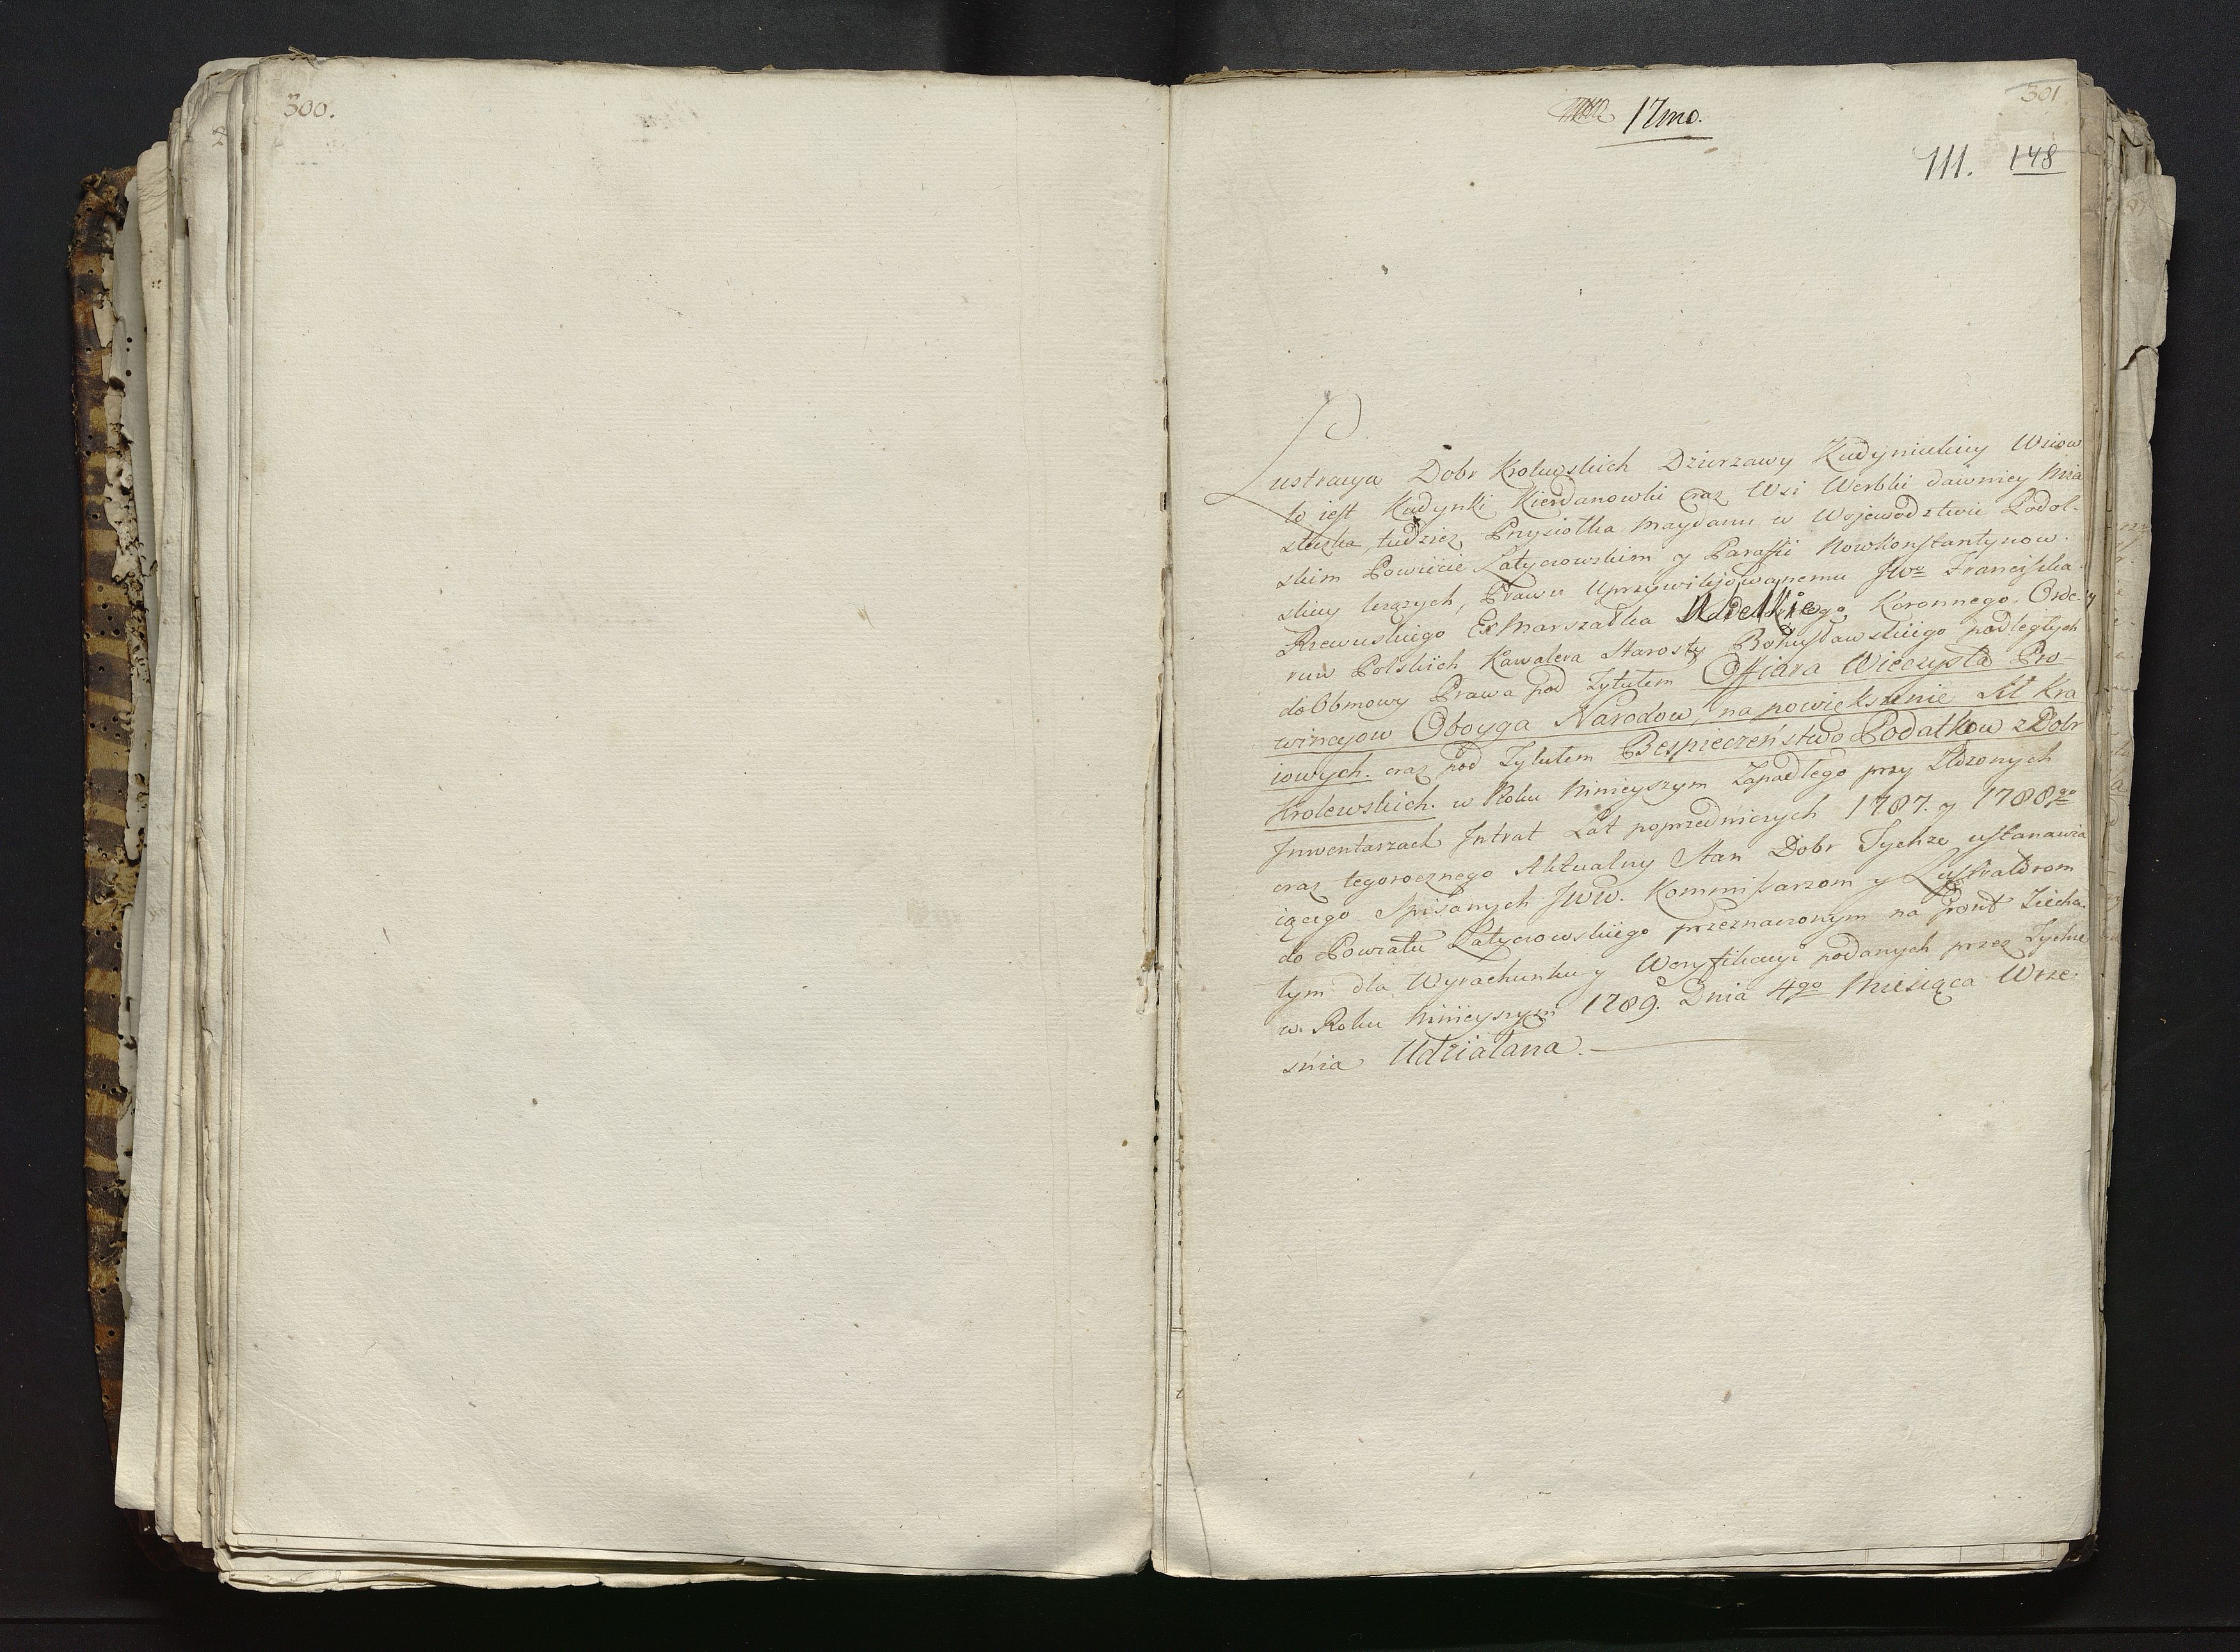 300.
301
17mo.
111. 148
Lustracya Dobr Krolewskich Dzierzawy Kudynieckiey Wsiow
to iest Kudynki Kierdanowki oraz Wsi Werbki dawniey Mia
steczka, tudziez Przysiołka Maydanu w Wojewodztwie Podol-
skim Powiecie Latyczowskim y Parafii Nowkonstantynow-
skiey lezących, Prawu Uprzywilejowanemu JWo Franciszka
Rzewuskiego Ex Marszałka Wielkiego Koronnego, Orde-
row Polskich Kawalera Starosty Bohusławskiego podległych
do Obmowy Prawa pod Tytułem Offiara Wieczysta Pro-
wincyow Oboyga Narodow, na powiększenie Sił Kra
iowych. oraz pod Tytułem Bespieczeństwo Podatkow z Dobr
Krolewskich. w Roku Ninieyszym Zapadłego przy Złożonych
Inwentarzach Intrat Lat poprzedniczych 1787. y 1788go
oraz tegorocznego Aktualny Stan Dobr Tychze ustanawia
iącego Spisanych JWW. Kommissarzom y Lustratorom
do Powiatu Latyczowskiego przeznaczonym na Gront Ziecha-
łym dla Wyrachunku y Weryfikacyi podanych przez Tychże
w Roku Ninieyszym 1789. Dnia 4go Miesiąca Wrze-
śnia Udziałana.